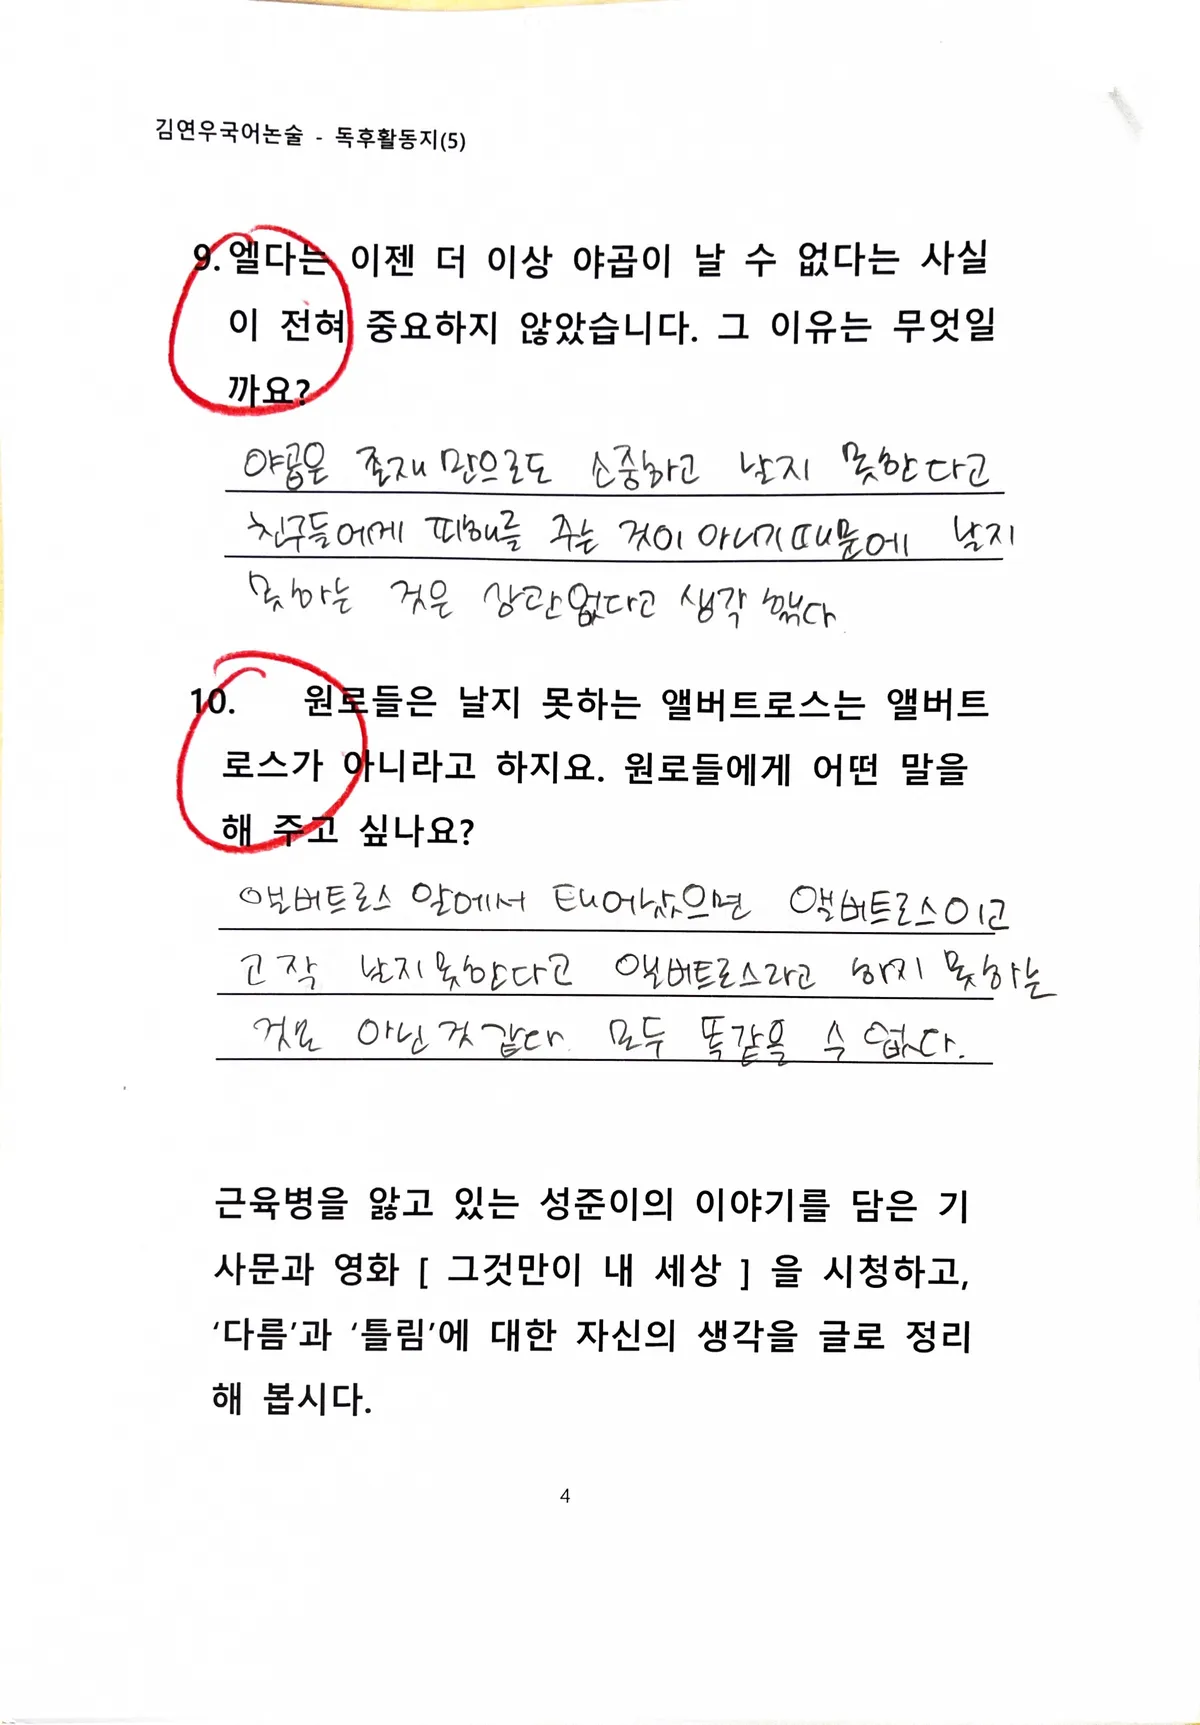 김연우국어논술 - 독후활동지(5)
9. 엘다는 이젠 더 이상 야곱이 날 수 없다는 사실
이 전혀 중요하지 않았습니다. 그 이유는 무엇일
까요?
야곱은 존재 만으로도 소중하고 날지 못한다고
친구들에게 피해를 주는 것이 아니기 때문에 날지
못하는 것은 상관없다고 생각 했다
10. 원로들은 날지 못하는 앨버트로스는 앨버트
로스가 아니라고 하지요. 원로들에게 어떤 말을
해 주고 싶나요?
앨버트로스 알에서 태어났으면 앨버트로스이고
고작 날지 못한다고 앨버트로스라고 하지 못하는
것은 아닌 것 같다. 모두 똑같을 수 없다.
근육병을 앓고 있는 성준이의 이야기를 담은 기
사문과 영화 [ 그것만이 내 세상 ] 을 시청하고,
‘다름’과 ‘틀림’에 대한 자신의 생각을 글로 정리
해 봅시다.
4